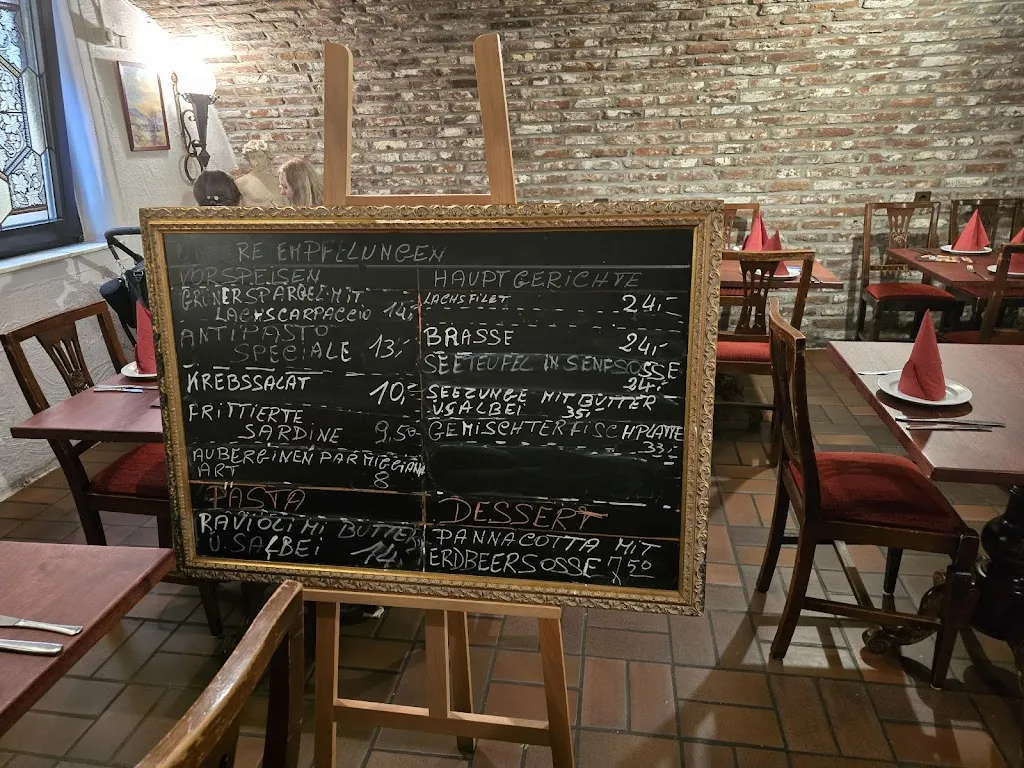 RE EMPFELUNGEN
VORSPEISEN
GRÜNERSPARGEL MIT
LACHSCARPACCIO 14,-
ANTIPASTO
SPECIALE 13,-
KREBSSALAT 10,-
FRITTIERTE
SARDINE 9,50
AUBERGINEN PARMIGGIANA
ART 8
PASTA
RAVIOLI MI BUTTER
U. SALBEI 14,-
HAUPTGERICHTE
LACHSFILET 24,-
BRASSE 24,-
SEETEUFEL IN SENFSOSSE
24,-
SEEZUNGE MIT BUTTER
U SALBEI 35,-
GEMISCHTER FISCHPLATTE
33,-
DESSERT
PANNACOTTA MIT
ERDBEERSOSSE 7,50